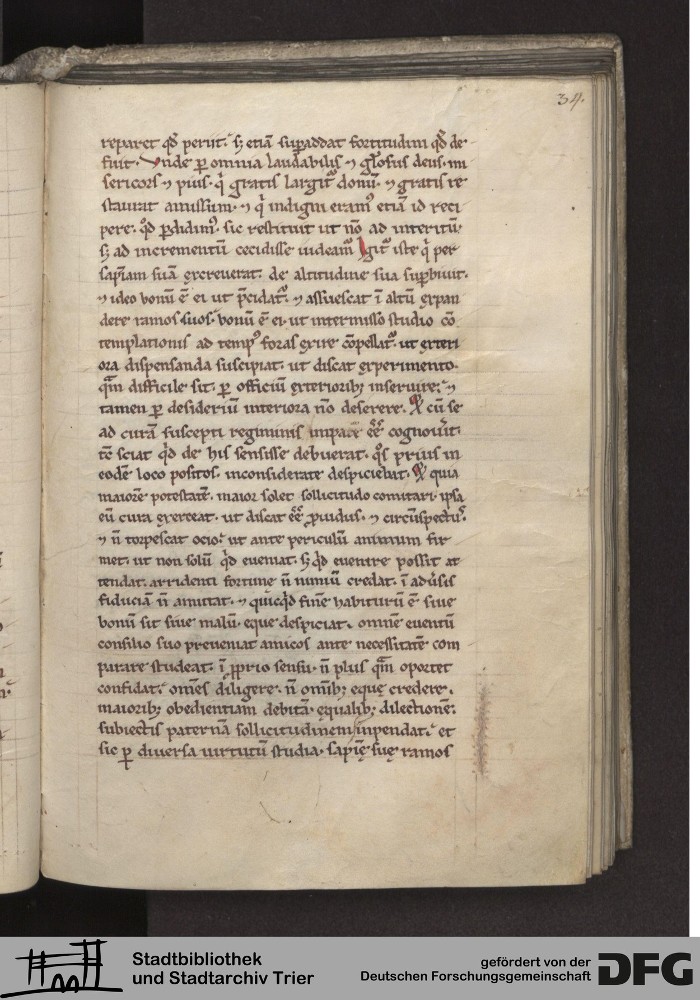 34.
reparet qd̄ periit. sꝫ etiā suꝑaddat fortitudini qd̄ de
fuit. Vnde ꝑ omnia laudabilis ⁊ gl̄osus deus. mi
sericors ⁊ pius. qͥ gratis largitᷣ donū. ⁊ gratis re
staurat amissum. ⁊ qͥ indigni eramꝰ etiā id reci
pere. qͦd ꝑdidimꝰ. sic restituit ut nō ad interitū.
sꝫ ad incrementū cecidisse uideamᷣ Igitᷣ iste qͥ per
sapiam suā excreuerat. de altitudine sua suꝑbiuit.
⁊ ideo bonū ē ei ut p̄cidatᷣ. ⁊ assuescat ī altū expan
dere ramos suos. bonū ē ei. ut intermisso studio cō
templationis ad tempꝰ foras exire cōpellatᷣ. ut exteri
ora dispensanda suscipiat. ut discat experimento.
qͣm difficile sit. ꝑ officiū exterioribꝫ inseruire. ⁊
tamen ꝑ desideriū interiora nō deserere. Et cū se
ad curā suscepti regiminis imparē ēē cognouīt.
tc̄ sciat qͥd de his sensisse debuerat. qͦs prius in
eodē loco positos. inconsiderate despiciebat. Et quia
maiorē potestatē. maior solet sollicitudo comitari. ipsa
eū cura exerceat. ut discat ēē ꝓuidus. ⁊ circūspectus.
⁊ n̄ torpescat ocio. ut ante periculū animum fir
met. ut non solū qͥd eueniat. sꝫ qͥd euenire possit at
tendat. arridenti fortune n̄ nimiū credat. ī aduīsis
fiduciā n̄ amittat. ⁊ quicqͥd finē habiturū ē siue
bonū sit siue malū. eque despiciat. omnē euentū
consilio suo preueniat amicos ante necessitatē com
parare studeat. ī ꝓprio sensu. n̄ plus qͣm oportet
confidat. omēs diligere. n̄ omībꝫ eque credere.
maioribꝫ obedientiam debitā. equalibꝫ dilectionē.
subiectis paternā sollicitudinem inpendat. et
sic ꝑ diuersa uirtutū studia. sapię suę ramos
Stadtbibliothek
und Stadtarchiv Trier
gefördert von der
Deutschen Forschungsgemeinschaft
DFG